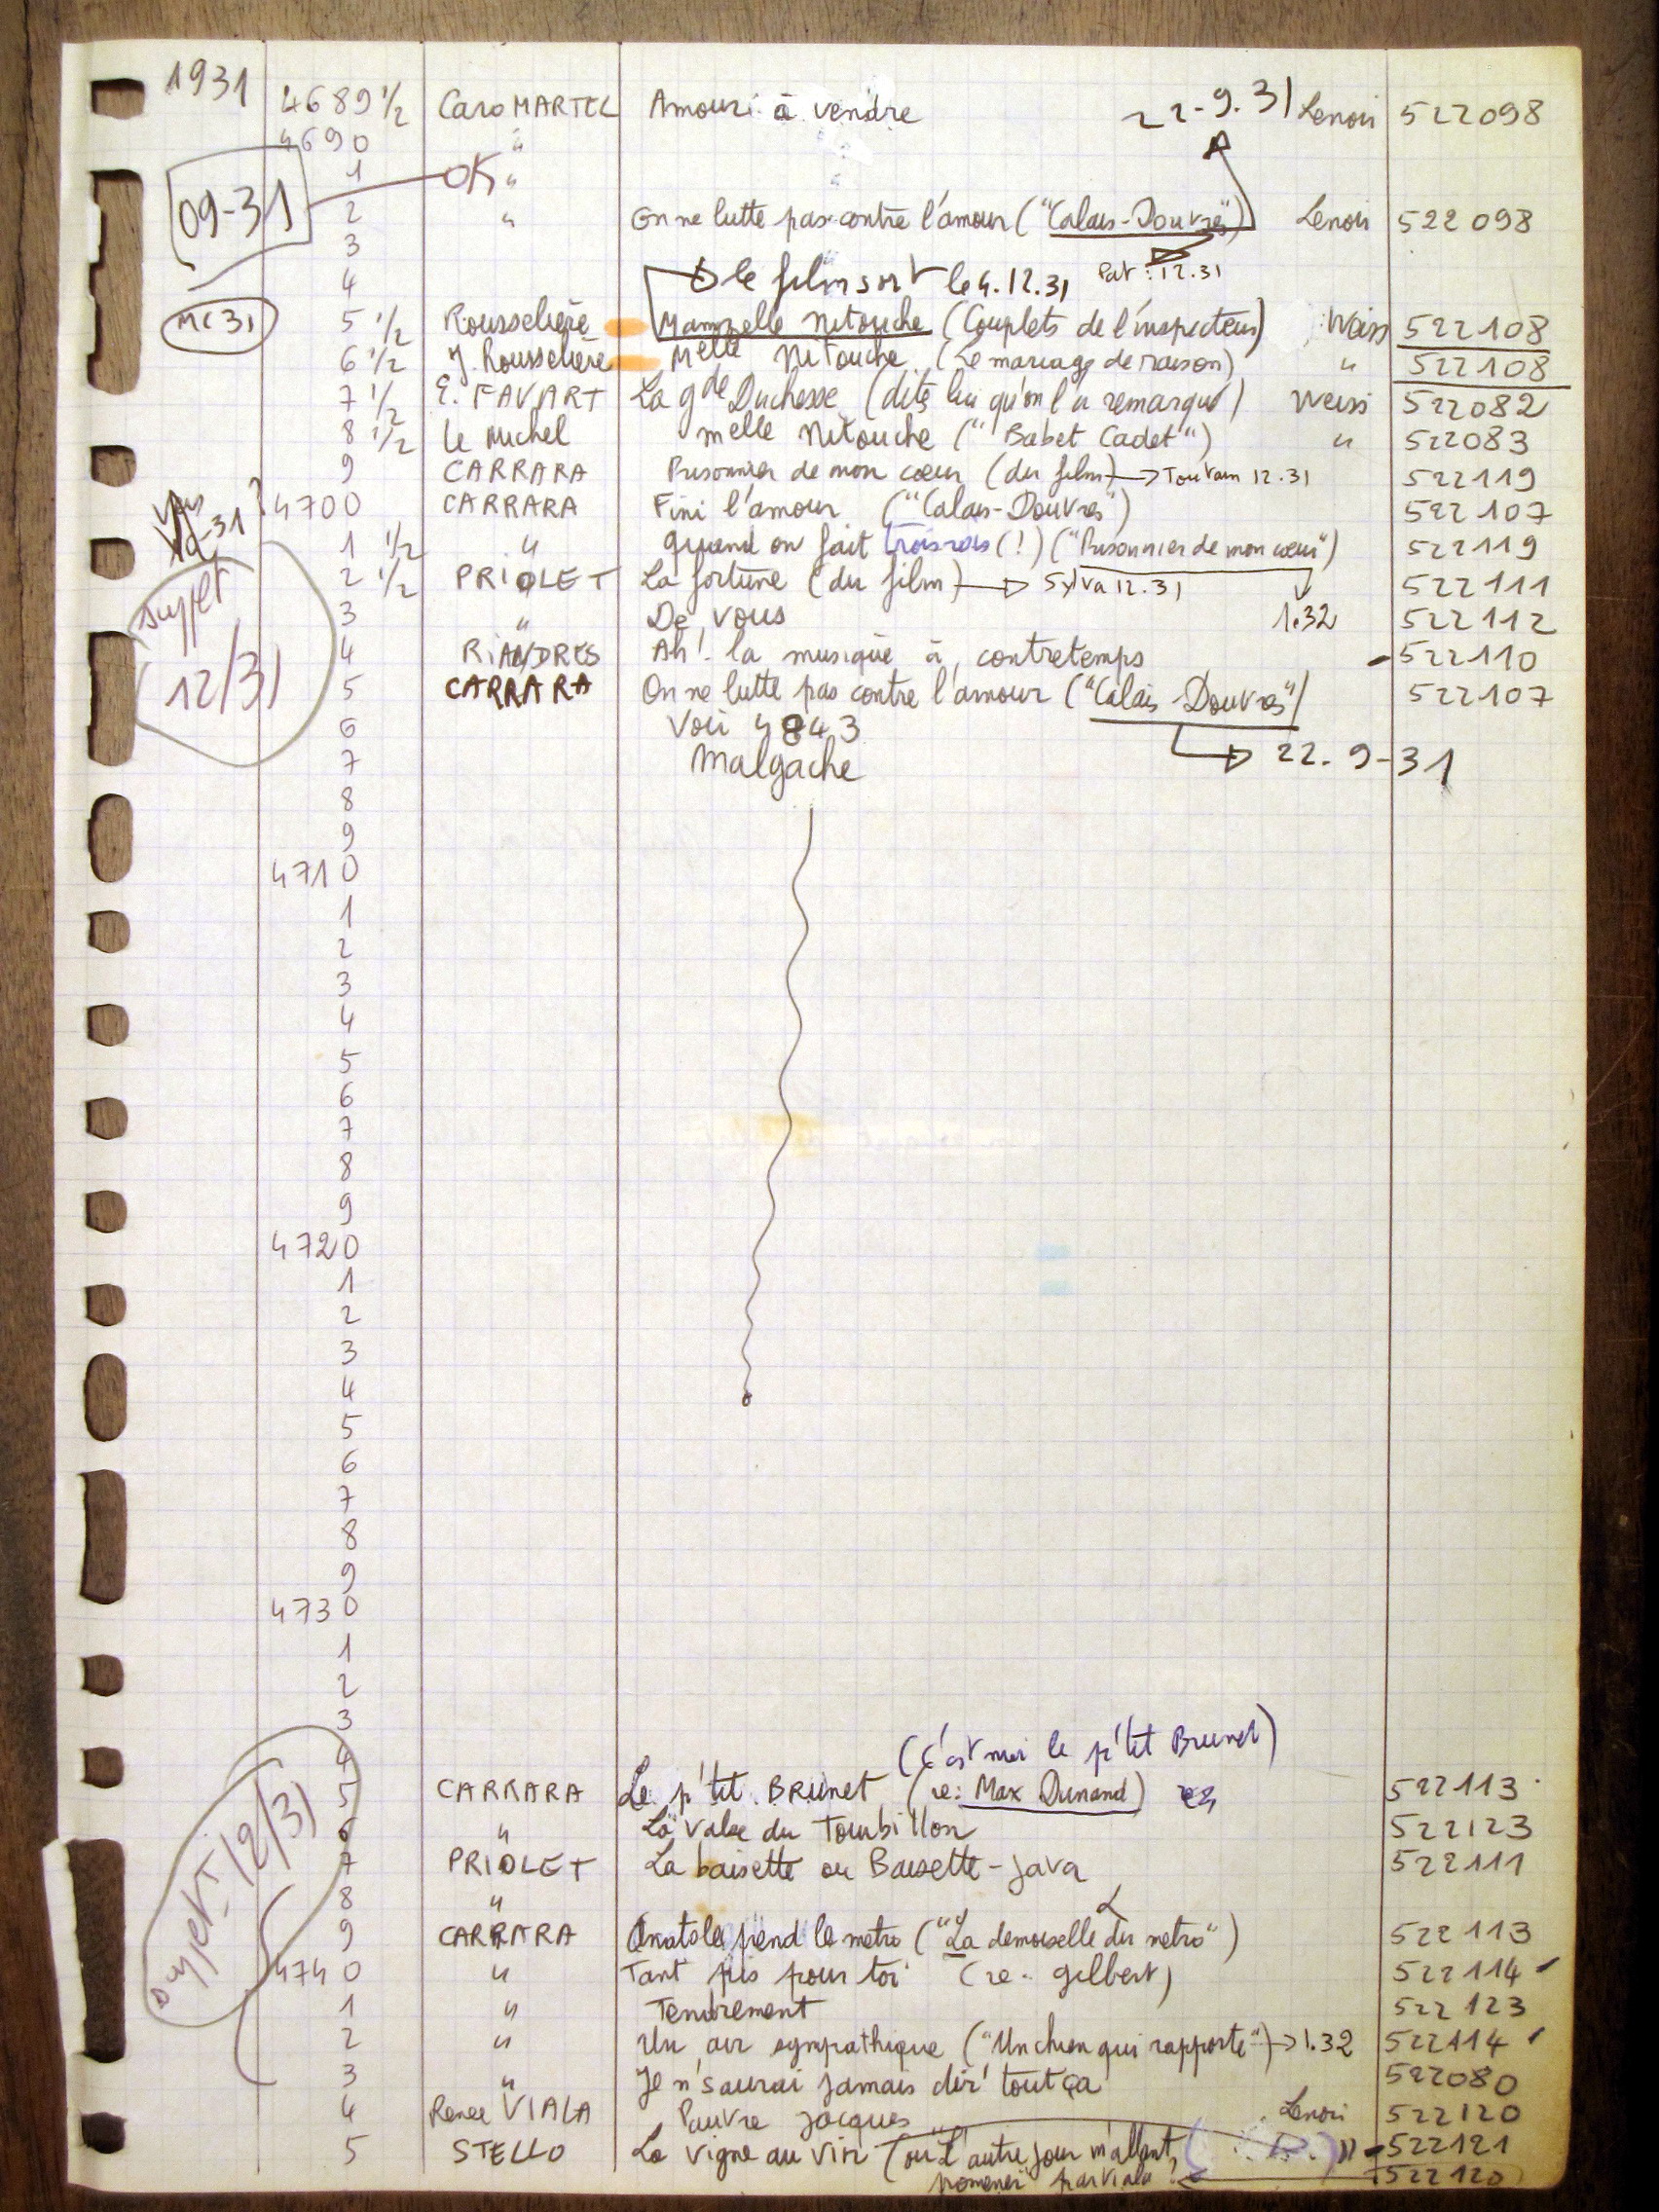 1931 4689 1/2 Caro MARTEL Amour à vendre 22-9.31 Lenoir 522098
4690 "
09-31 1 OK "
2 " On ne lutte pas contre l'amour ("Calais-Douvres") Lenoir 522098
3
4 le film sort le 4.12.31 Pat: 12.31
MC 31 5 1/2 Rousselière Mamzelle Nitouche (Couplets de l'inspecteur) Weiss 522108
6 1/2 J. Rousselière Melle Nitouche (Le mariage de raison) " 522108
7 1/2 E. FAVART La gde Duchesse (dites lui qu'on l'a remarqué) Weiss 522082
8 1/2 Le Michel melle Nitouche ("Babet Cadet") " 522083
9 CARRARA Prisonnier de mon cœur (du film) → Toutain 12.31 522119
-31 ? 4700 CARRARA Fini l'amour ("Calais-Douvres") 522107
1 1/2 " Quand on fait trois fois (!) ("Prisonnier de mon cœur") 522119
2 1/2 PRIOLET La fortune (du film) → Sylva 12.31 522111
3 " De vous 1.32 522112
4 RIANDRES Ah! la musique à contretemps 522110
12/31 5 CARRARA On ne lutte pas contre l'amour ("Calais-Douvres") 522107
6 Voir 4843
7 Malgache → 22.9-31
8
9
4710
1
2
3
4
5
6
7
8
9
4720
1
2
3
4
5
6
7
8
9
4730
1
2
3
4 (C'est moi le p'tit Brunet)
5 CARRARA Le p'tit BRUNET (re: Max Dunand) 522113
12/31 6 " La valse du Tourbillon 522123
7 PRIOLET La baisette ou Baisette-java 522111
8 "
9 CARRARA Anatole prend le metro ("La demoiselle du metro") 522113
4740 " Tant pis pour toi (re. Gilbert) 522114
1 " Tendrement 522123
2 " Un air sympathique ("Un chien qui rapporte") → 1.32 522114
3 " Je n'saurai jamais dir' tout ça 522080
4 Renee VIALA Pauvre Jacques Lenoir 522120
5 STELLO La vigne au vin (ou "L'autre jour m'allant 522121
promener" par Viala ? 522120